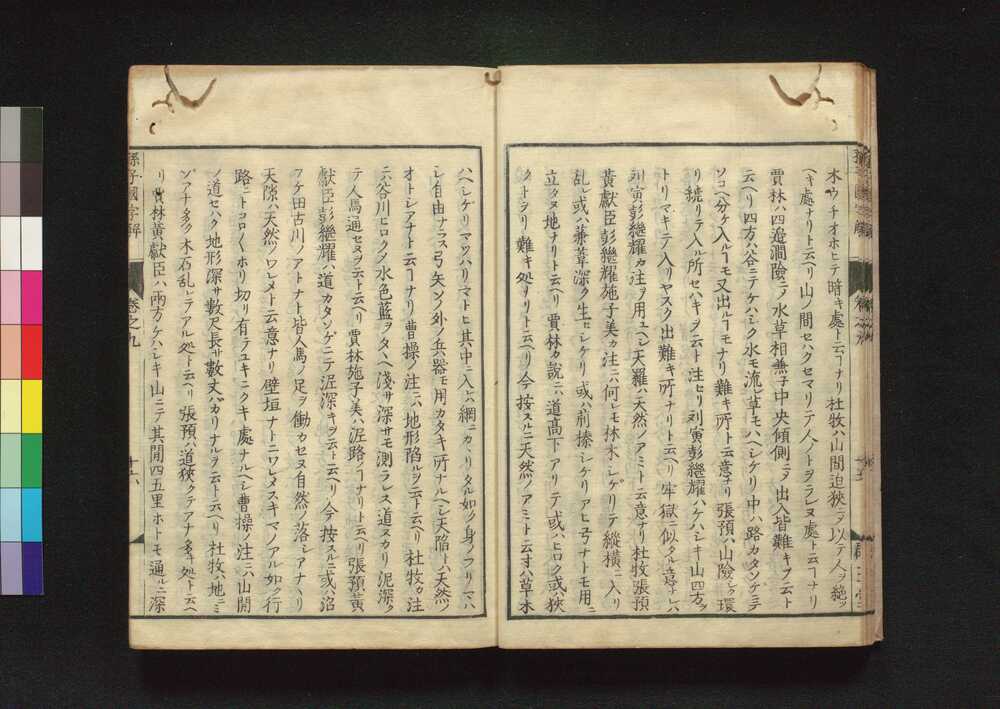 木ウチオホヒテ暗キ處ト云フナリ杜牧ハ山間迫狹ヲ以テ人ヲ絶ッ
ヘキ處ナリト云ヘリ山ノ間セハクセマリテ人ノトヲラレヌ處ト云フナリ
賈林ハ四追澗險ニテ水草相兼子中央傾側ニメ出入皆難キヲ云ト
云ヘリ四方ハ谷ニテケハシク水モ流レ草モハヘシケリ中ハ路カタツンデミテ
ソコヘ分ケ入ルヿモ又出ルヿモナリ難キ所ト云意ナリ張預ハ山險レテ環
リ繞リテ入ル所セハキヲ云ト注セリ刘寅彭繼耀ハケハシキ山四方ヲ
トリマキテ入リヤスク出難キ所ナリト云ヘリ牢獄ニ似タル意ナレハ
刘寅彭繼耀カ注ヲ用ユヘシ天羅ハ天然ノアミト云意ナリ杜牧張預
黄獻臣彭繼耀施子美カ注ニハ何レモ林木シゲリテ縱横ニ入リ
乱レ或ハ蒹葭深ク生ヒシケリ或ハ荊榛シケリアヒ弓ナトモ用ニ
立タヌ地ナリト云ヘリ賈林カ説ニハ道髙下アリテ或ハヒロク或ハ狹
クトヲリ難キ処ナリト云ヘリ今按スルニ天然ノアミト云寸ハ草木
ハヘシケリマツハリマトヒ其中ニ入レハ網ニカヽリタル如ク身ノフリマハ
シ自由ナラス弓矢ソノ外ノ兵器モ用カタキ所ナルヘシ天陷トハ天然ノ
オトシアナト云フナリ曹操ノ注ニハ地形陷ルヲ云ト云ヘリ杜牧カ注
ニハ谷川ヒロクメ水色藍ヲタヽヘ淺サ深サモ測ラレス道スカリ泥深メ
テ人馬通セヌヲ云ト云ヘリ賈林施子美ハ泥路ノナリト云ヘリ張預黄
獻臣彭繼耀ハ道カタツンゲニテ泥深キヲ云ト云ヘリ今按スルニ或ハ沼
フケ田古川ノアトナト皆人馬ノ足ヲ働カセヌ自然ノ落シアナヽリ
天隙ハ天然ノワレメト云意ナリ壁垣ナトニワレメスキマノアル如ク行
路ニトコロ〳〵ホリ切リ有テユキニクキ處ナルヘシ曹操ノ注ニハ山間
ノ道セハク地形深サ數尺長サ數丈ハカリナルヲ云ト云ヘリ杜牧ハ地ニミ
ゾアナ多ク木石乱レテアル処ト云ヘリ張預ハ道狹クテアナ多キ処ト云ヘ
リ賈林黄獻臣ハ兩方ケハシキ山ニテ其間四五里ホトモ通ルニ深
孫子國字解
卷之九
十六